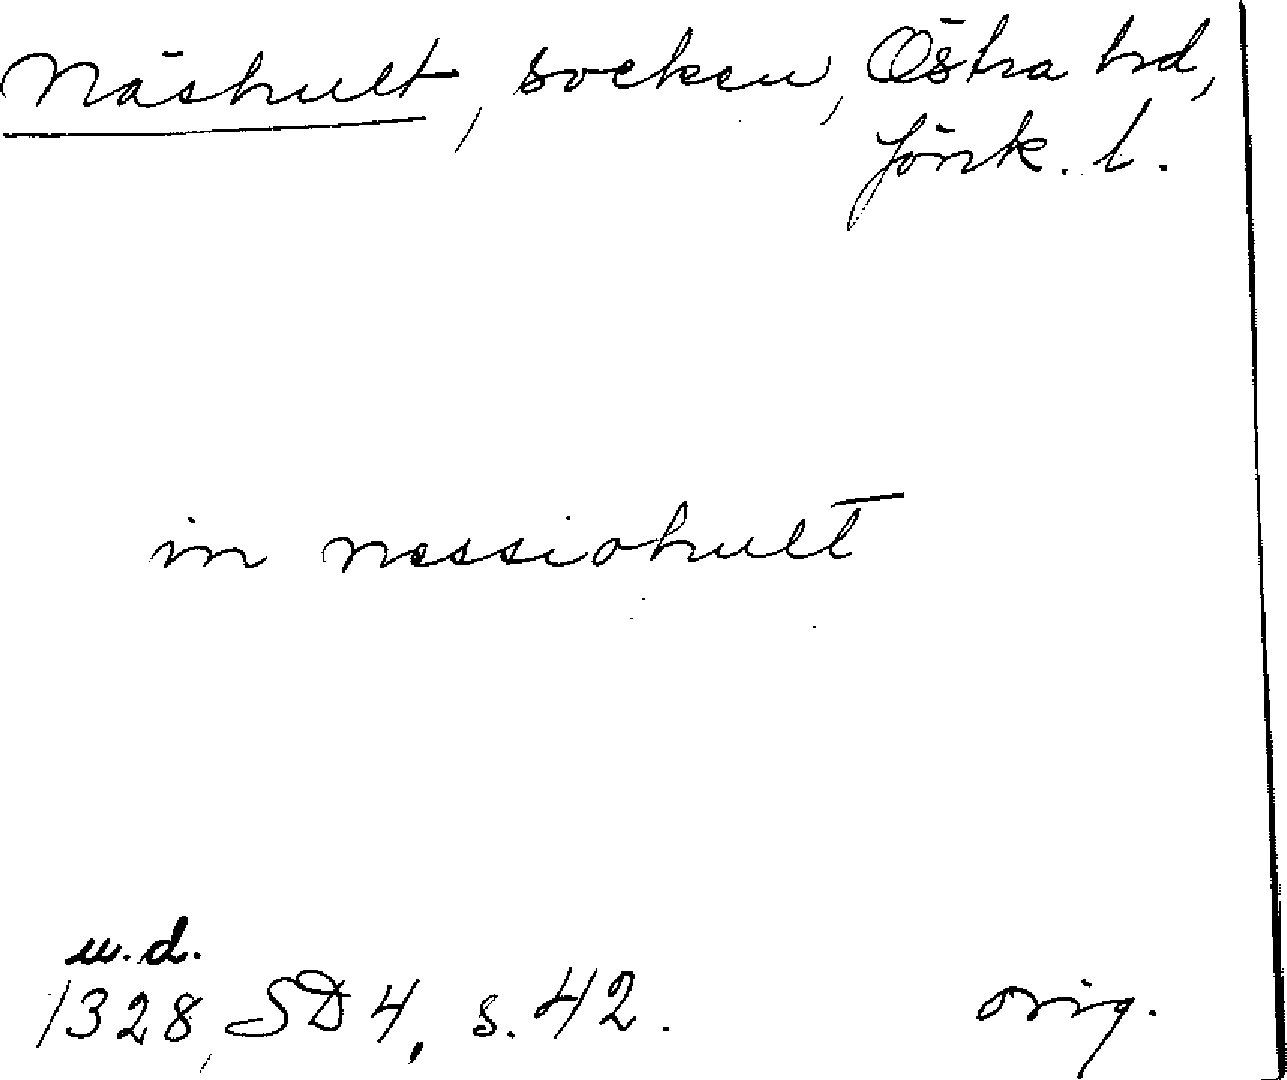 Näshult, socken, Östra hd,
Jönk. l.
in nessiohult
u.d.
1328, SD 4, s. 42.
orig.